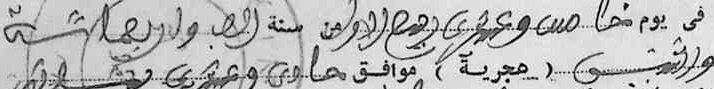 فى يوم خامس وعشرين ربيع الاول من سنة الف واربعمائة
واثنتين ( هجرية ) موافق حادى وعشرين